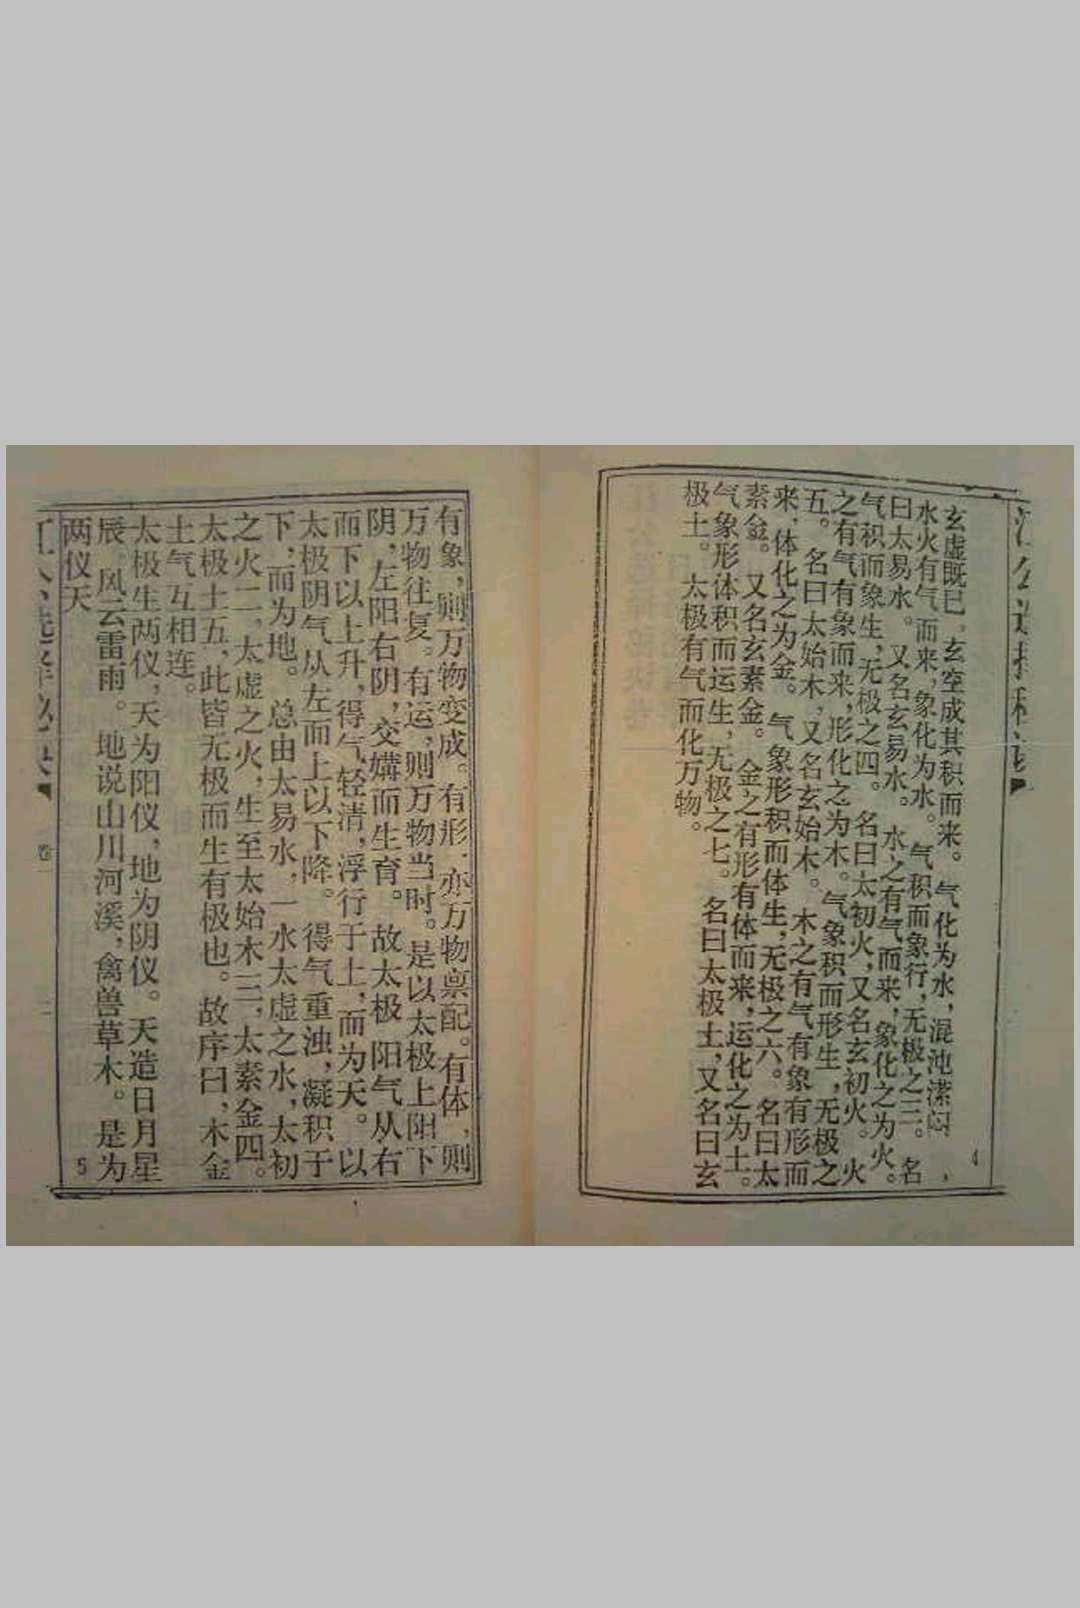 玄虚既已。玄空成其积而来。气化为水，混沌潆闷，
水火有气而来，象化为水。气积而象行，无极之三。名
曰太易水。又名玄易水。水之有气而来，象化之为火。
气积而象生，无极之四。名曰太初火，又名玄初火。火
之有气有象而来，形化之为木。气象积而形生，无极之
五。名曰太始木，又名玄始木。木之有气有象有形而
来，体化之为金。气象形积而体生，无极之六。名曰太
素金。又名玄素金。金之有形有体而来，运化之为土。
气象形体积而运生，无极之七。名曰太极土，又名曰玄
极土。太极有气而化万物。
4
有象，则万物变成。有形，亦万物禀配。有体，则
万物往复。有运，则万物当时。是以太极上阳下
阴，左阳右阴，交媾而生育。故太极阳气从右
而下以上升，得气轻清，浮行于上，而为天。以
太极阴气从左而上以下降。得气重浊，凝积于
下，而为地。总由太易水，一水太虚之水，太初
之火二，太虚之火，生至太始木三，太素金四。
太极土五，此皆无极而生有极也。故序曰，木金
土气互相连。
太极生两仪，天为阳仪，地为阴仪。天造日月星
辰，风云雷雨。地说山川河溪，禽兽草木。是为
两仪天
5